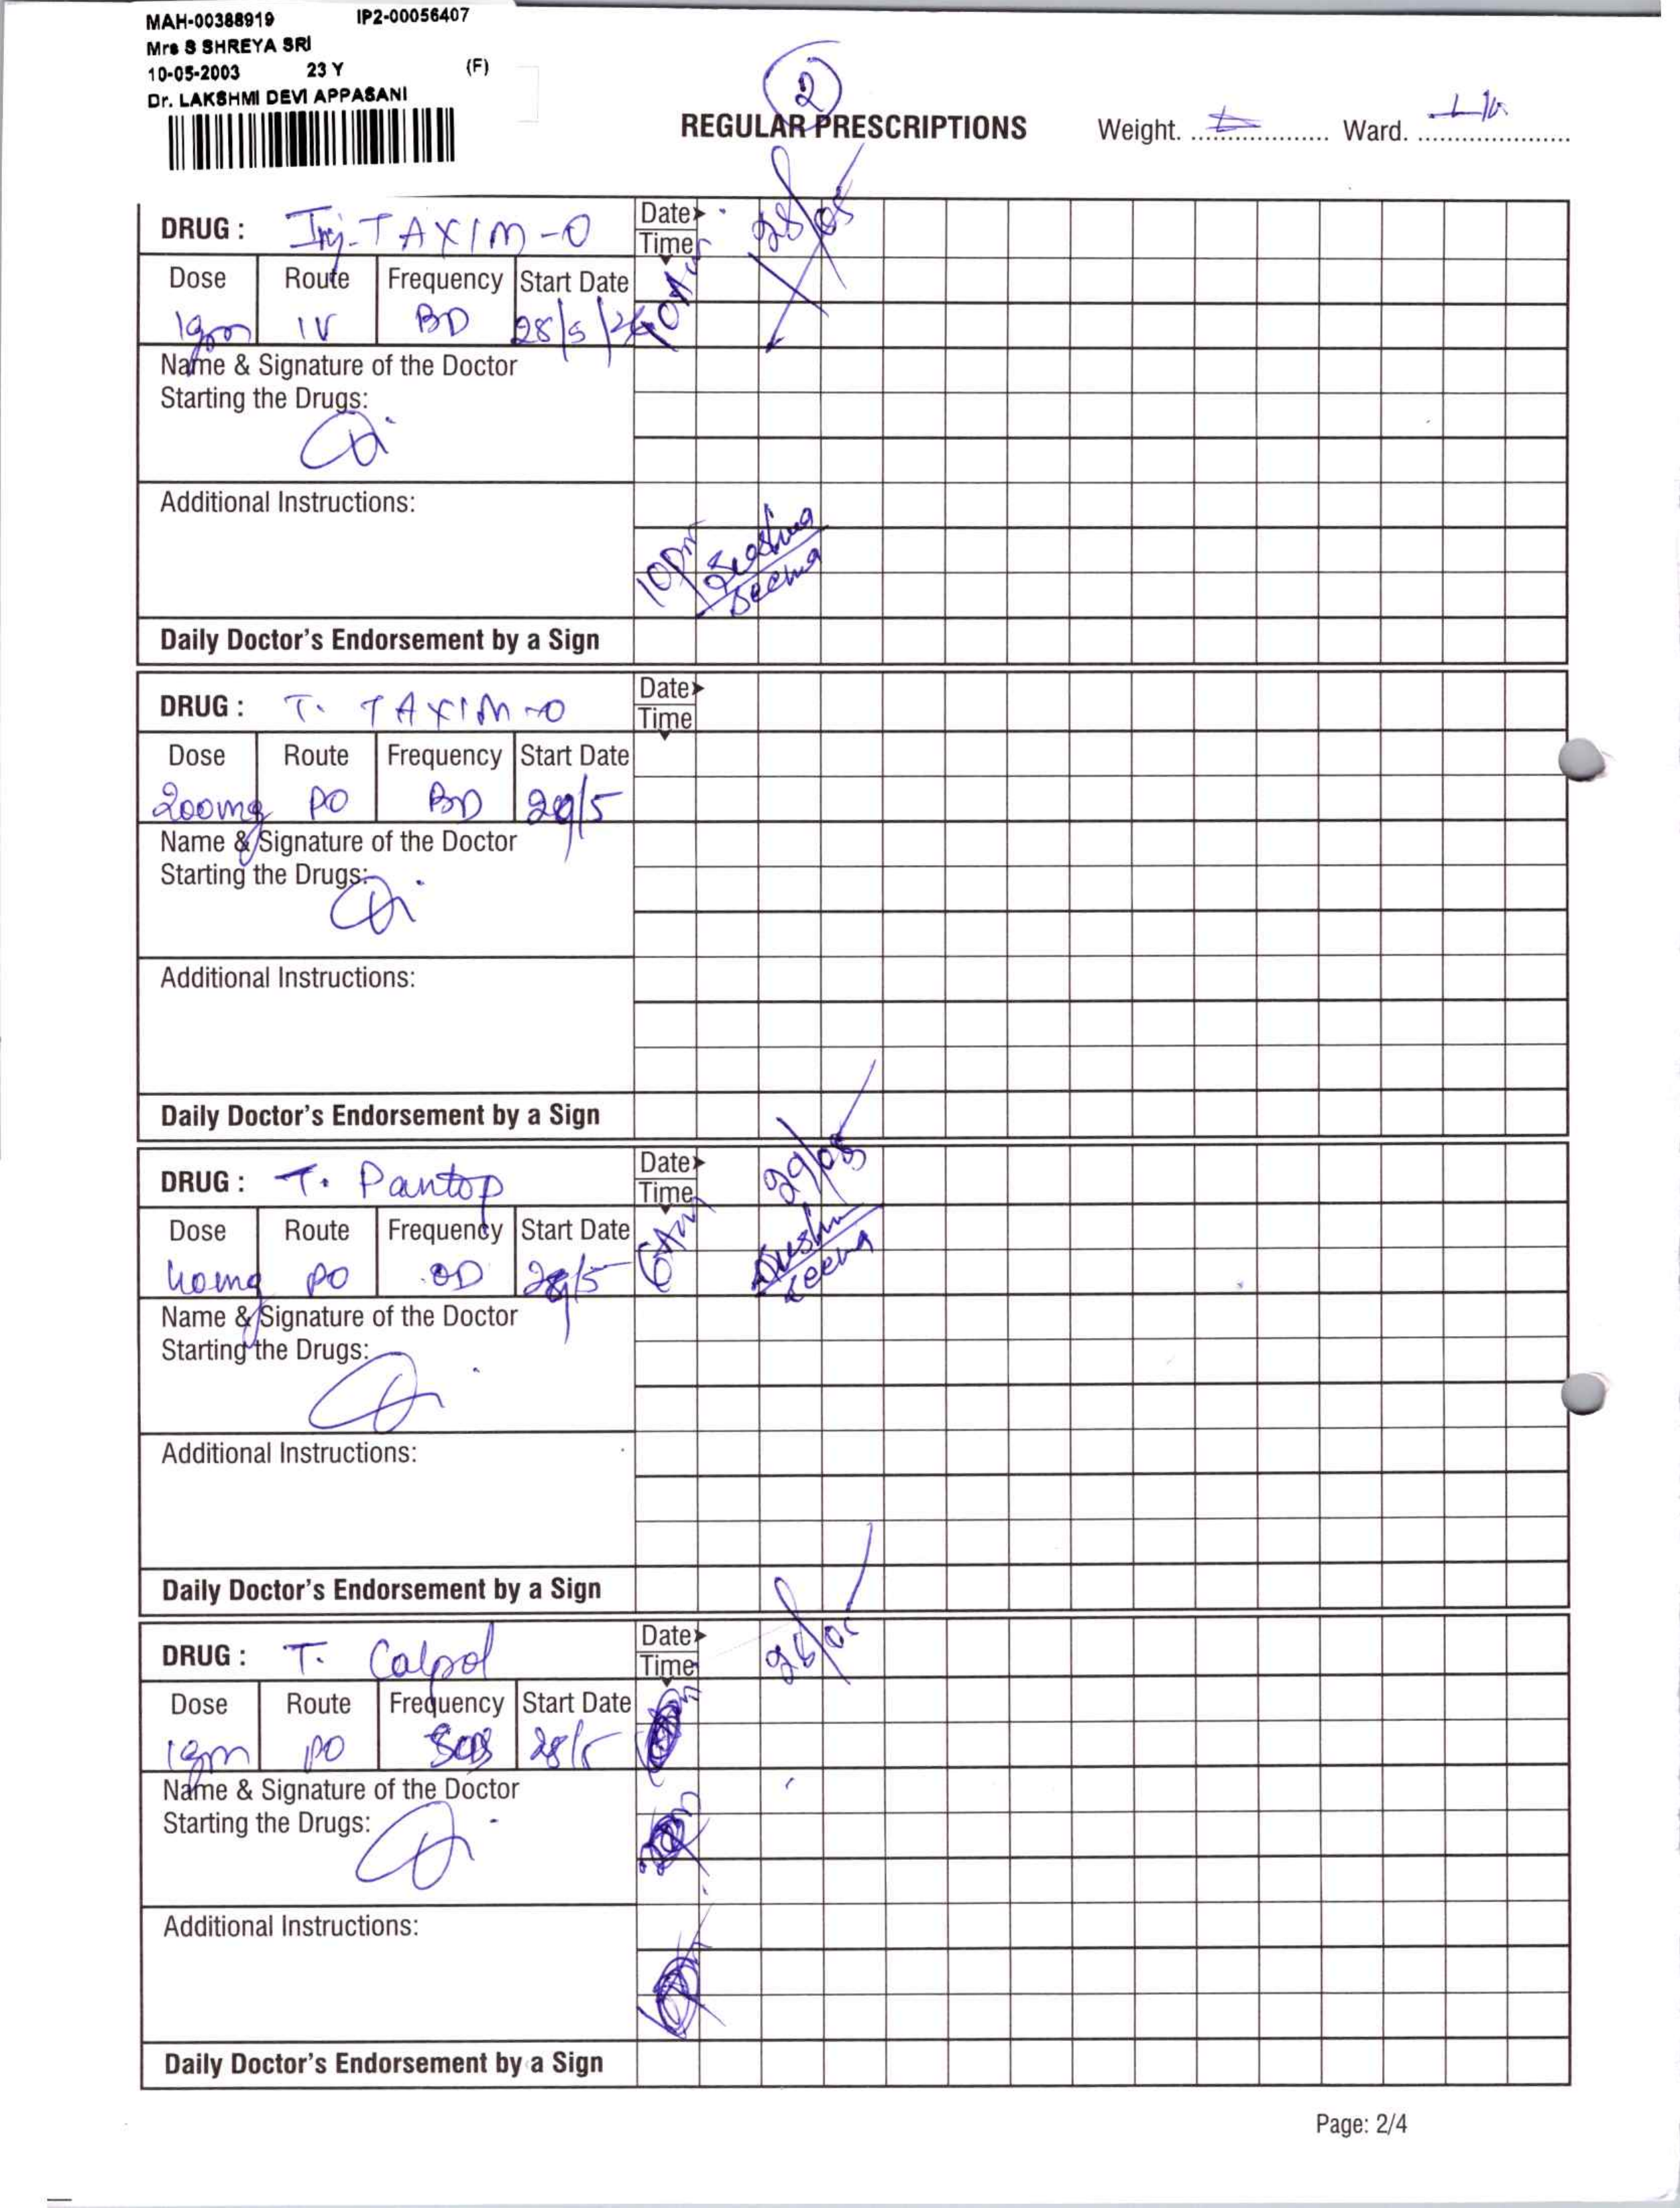 MAH-00388919 IP2-00056407
Mrs S SHREYA SRI
10-05-2003 23 Y (F)
Dr. LAKSHMI DEVI APPASANI
2
REGULAR PRESCRIPTIONS Weight. Ward.
DRUG : Inj. TAXIM-O Date Time 28/05
Dose Route Frequency Start Date
1gm IV BD 28/5/26 10AM
Name & Signature of the Doctor
Starting the Drugs:
Additional Instructions:
10pm
Seema
Daily Doctor's Endorsement by a Sign
DRUG : T. TAXIM-O Date Time
Dose Route Frequency Start Date
200mg PO BD 29/5
Name & Signature of the Doctor
Starting the Drugs:
Additional Instructions:
Daily Doctor's Endorsement by a Sign
DRUG : T. Pantop Date Time 29/05
Dose Route Frequency Start Date
40mg PO OD 29/5 6AM
Name & Signature of the Doctor
Starting the Drugs:
Additional Instructions:
Daily Doctor's Endorsement by a Sign
DRUG : T. Calpol Date Time
Dose Route Frequency Start Date
1gm PO SOS 28/5
Name & Signature of the Doctor
Starting the Drugs:
Additional Instructions:
Daily Doctor's Endorsement by a Sign
Page: 2/4